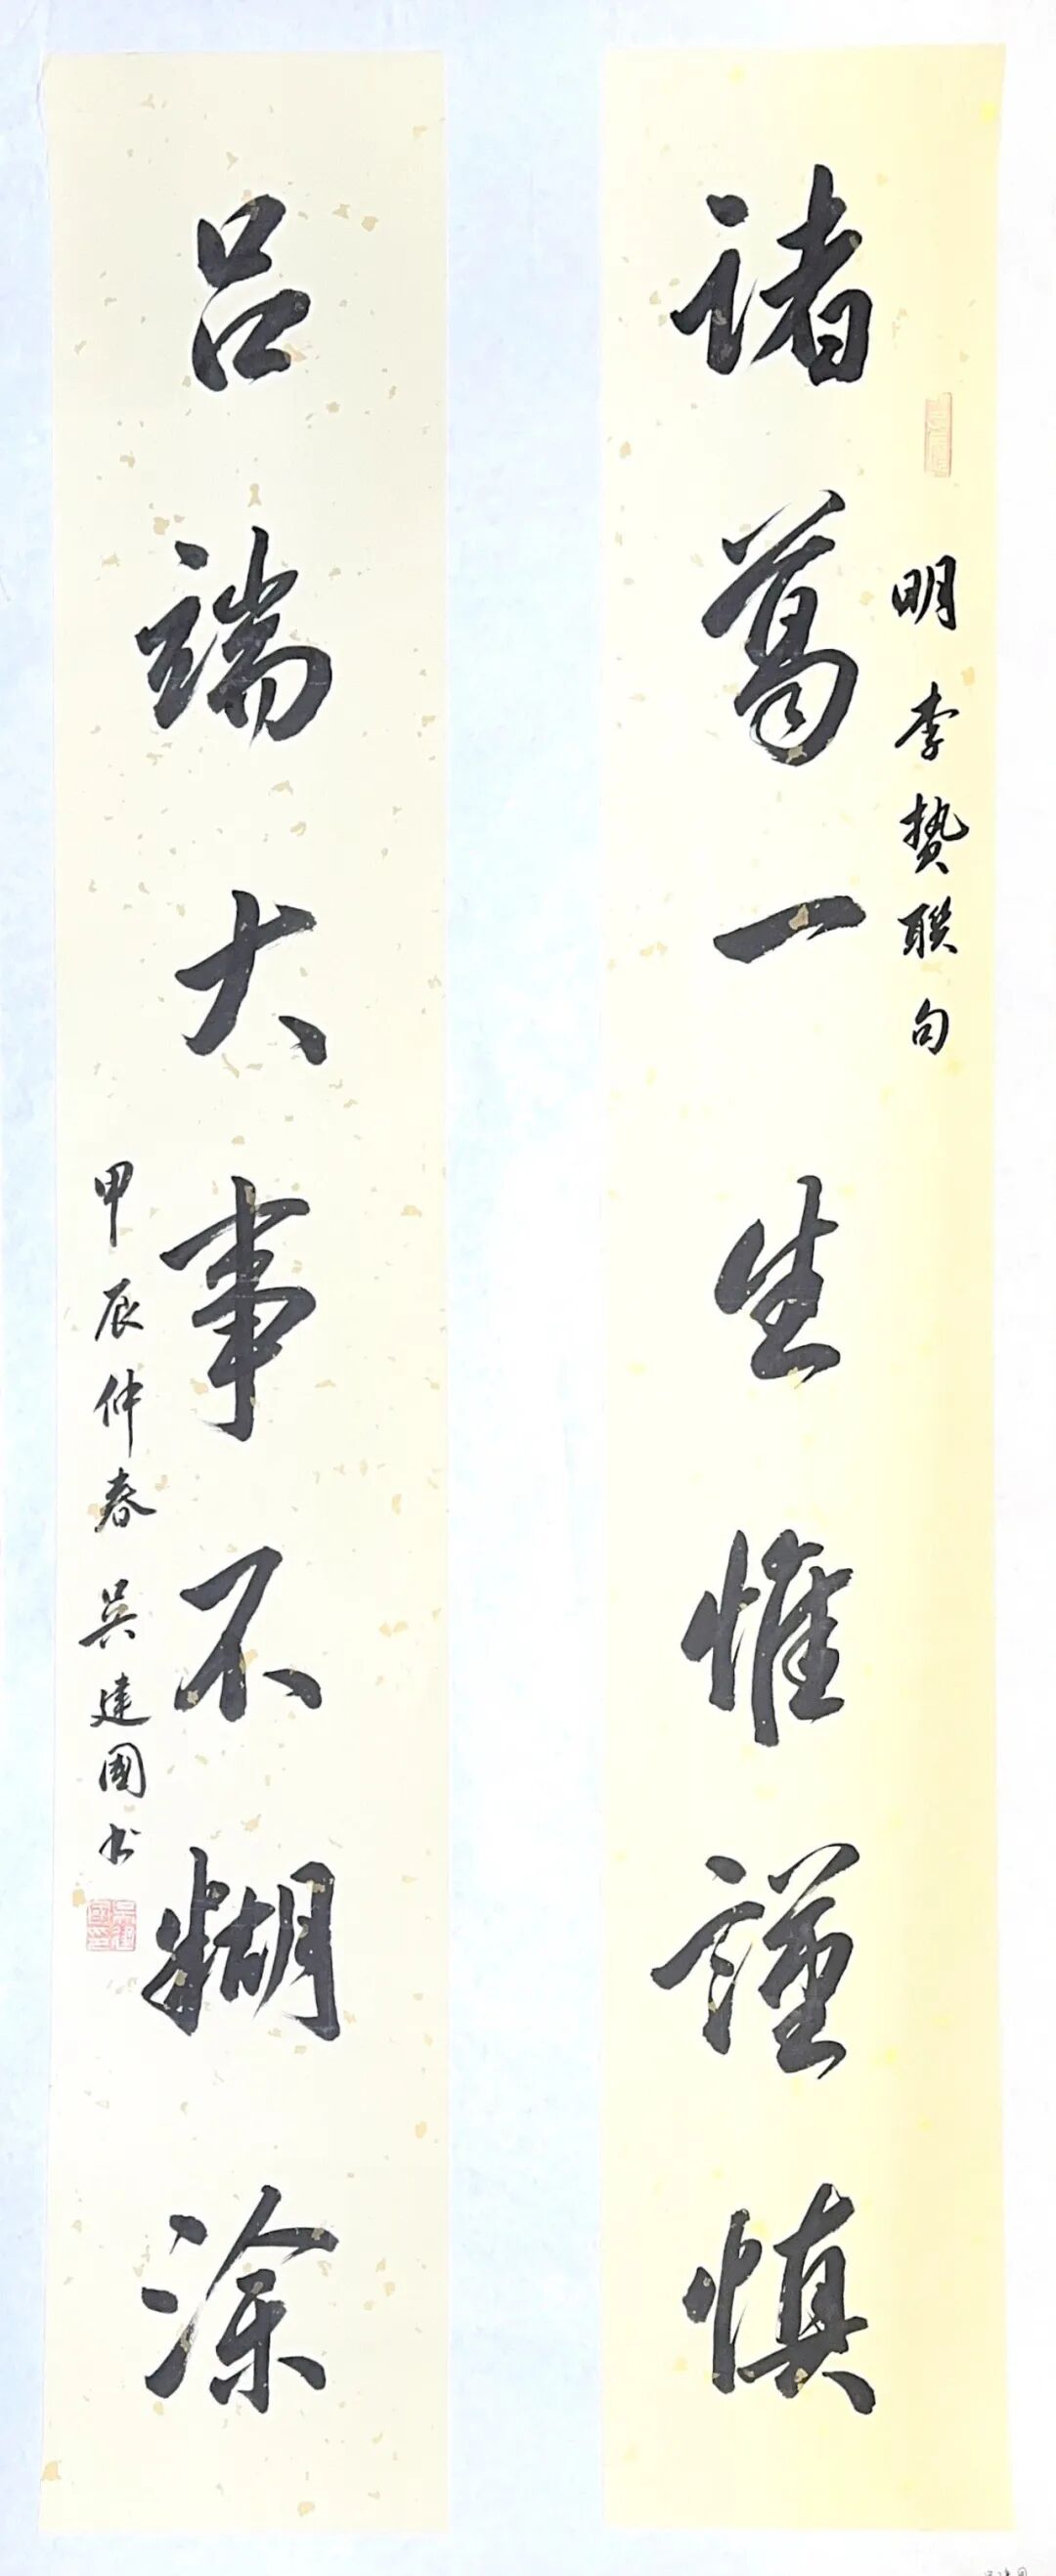 明 李贽联句
诸葛一生惟谨慎
吕端大事不糊涂
甲辰仲春 吴建国书